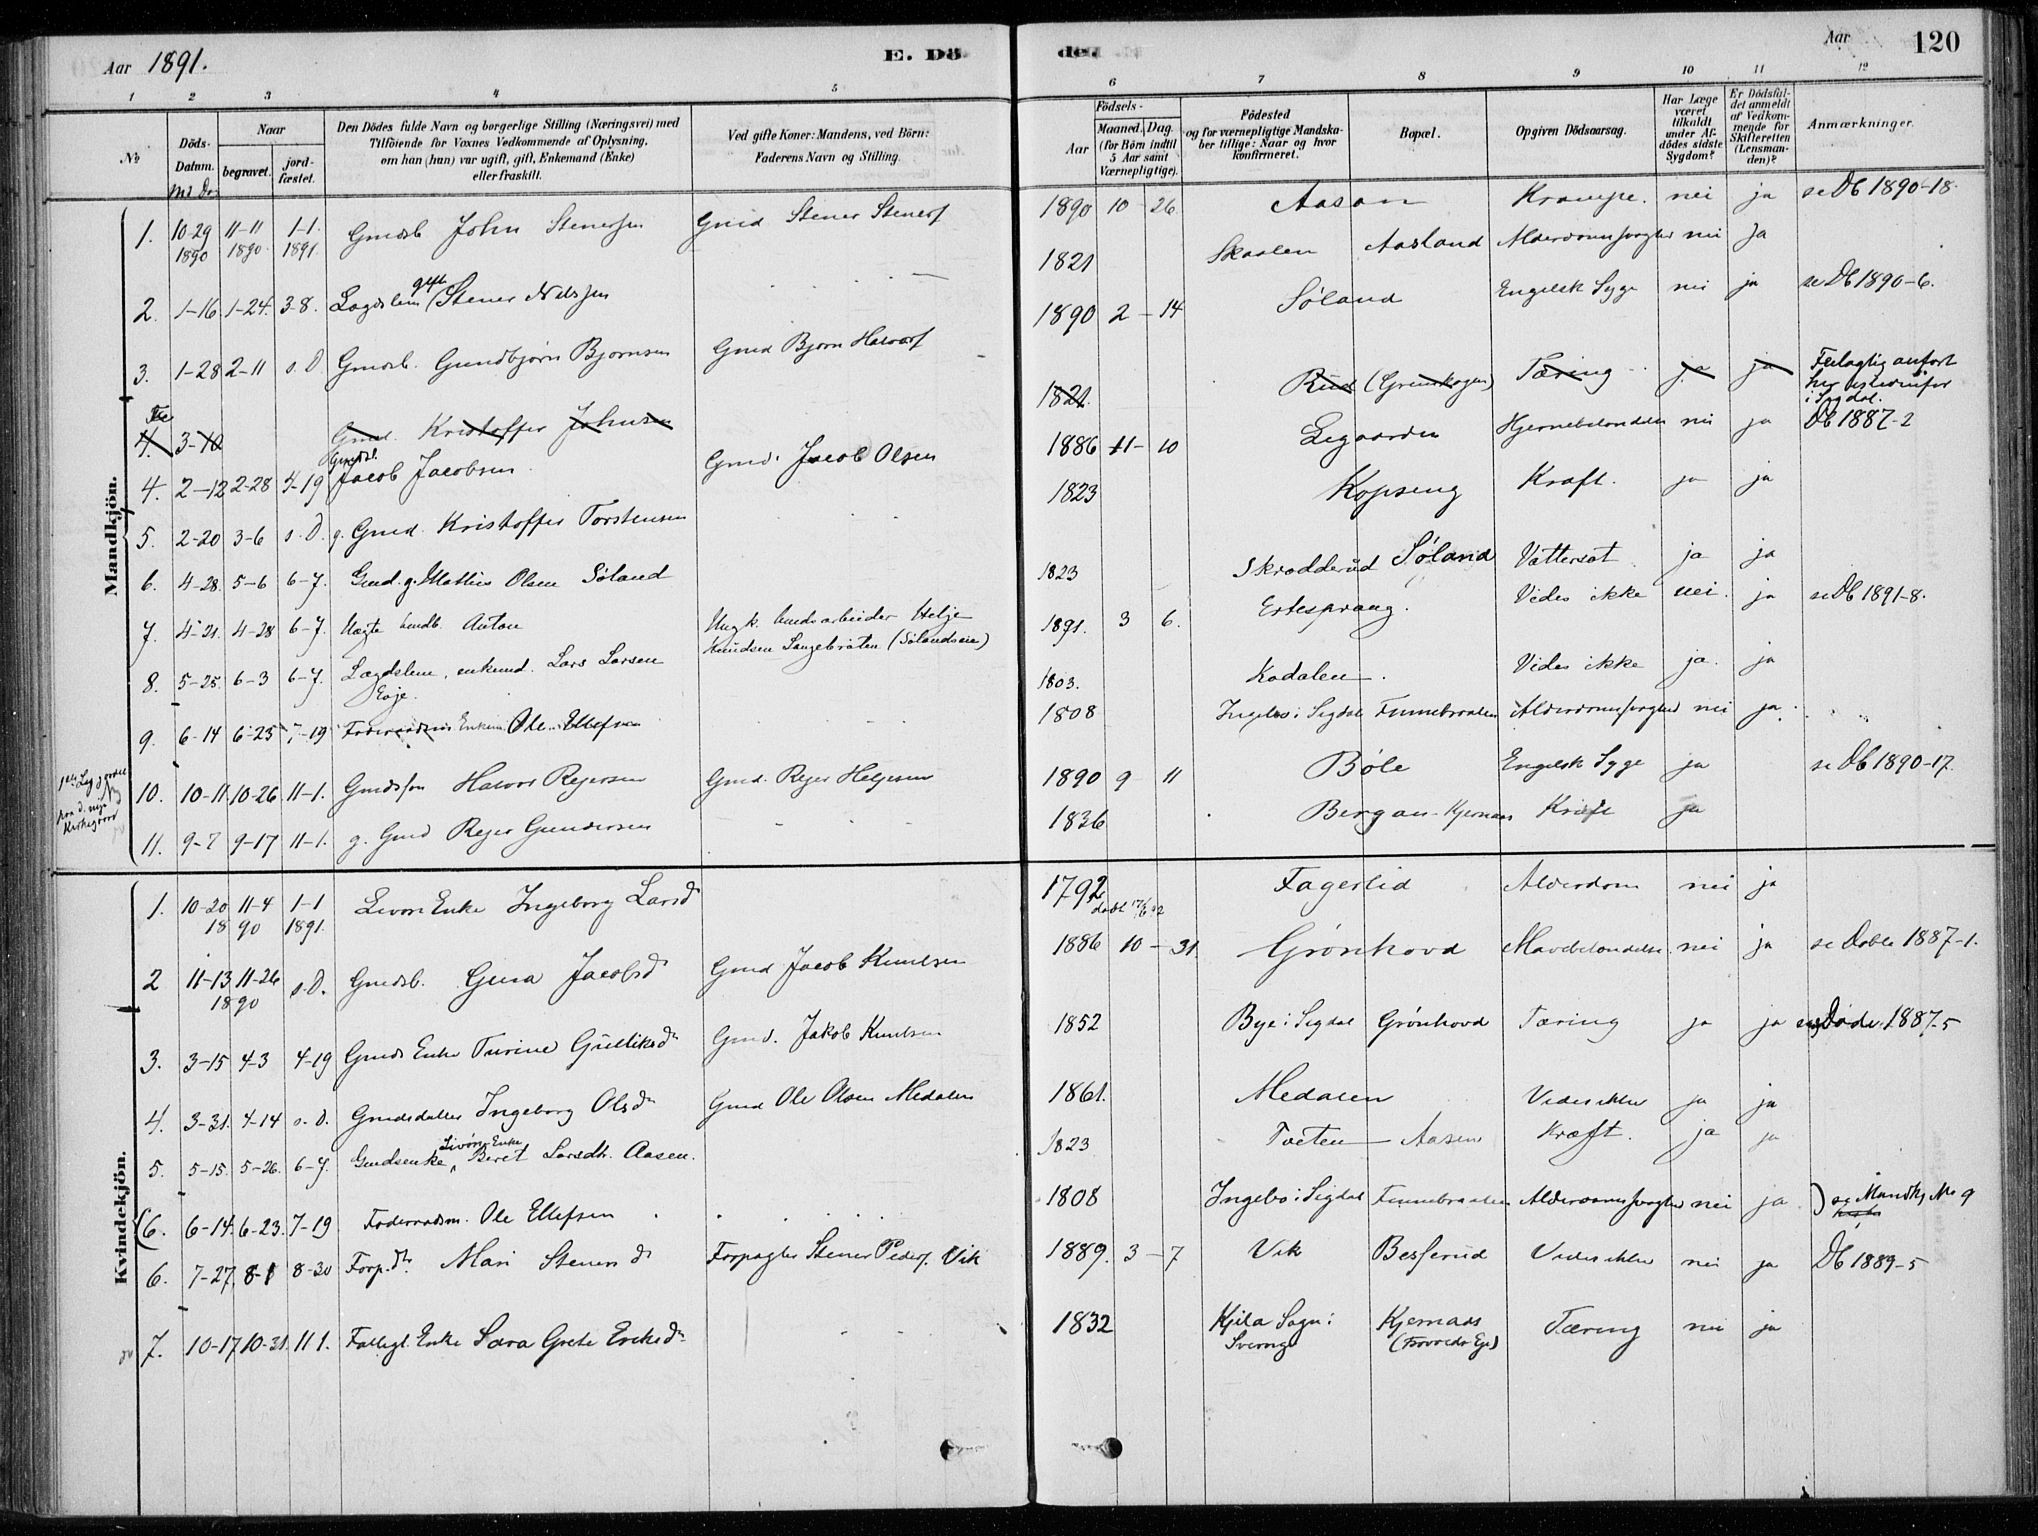 Aar 1891. E. Dö
1 2 3 4 5
№ Döds-Datum. Naar begravet. jordfæstet. Den Dödes fulde Navn og borgerlige Stilling (Næringsvei) med Tilföiende for Voxnes Vedkommende af Oplysning, om han (hun) var ugift, gift, Enkemand (Enke) eller fraskilt. Ved gifte Koner: Mandens, ved Börn: Faderens Navn og Stilling.
Md Dag
Mandkjön.
1. 10-29 1890 11-11 1890 1-1. 1891. Gmdsb. John Stenersen Gmd Stener Stenersf
2. 1-16. 1-24. 3-8. Lægdslem gift Stener Nilssen
3. 1-28 2-11 s. D. Gmdsb. Gundbjørn Bjørnsen Gmd Bjørn Halvorsf
4. 3-10 Gmd. Kristoffer Johnsen
4. 2-12 2-28 4-19 Gmdsb. Jacob Jacobsen Gmd. Jacob Olsen
5. 2-20 3-6 s. D. g. Gmd. Kristoffer Torstensen
6. 4-28. 5-6 6-7. Gmd. g. Mathis Olsen Søland
7. 4-21. 4-28 6-7. Uægte Anton Ungk. Helje Knudsen Langebråten (Sølandseie)
8. 5-25. 6-3 6-7. Lægdslem, enkemd. Lars Larsen Eoje.
9. 6-14 6-23 7-19 Foderaadsm. Enkem. Ole Ellefsen
10. 10-11. 10-26 11-1. Gmdssøn Halvor Reiersen Gmd. Reier Helgesen
1ste Lig
paa d. nye
Kirkegaard
11. 9-7 9-17 11-1. g. Gmd Reier Gundersen
Kvindekjön.
1. 10-20 11-4 1890 1-1 1891. Livør. Enke Ingeborg Larsdr
2 11-13 11-26 1890 s. D. Gmdsb. Gina Jacobsdr Gmd Jacob Knudsen
3. 3-15 4-3 4-19 Gmds Enke Turine Gulliksdr Gmd. Jakob Knudsen
4. 3-31. 4-14 s. D. Gmdsdatter Ingeborg Olsdr Gmd Ole Olsen Medalen
5. 5-15. 5-26. 6-7. Gmdsenke, Livørs-Enke Beret Larsdtr. Aasen.
(6. 6-14. 6-23. 7-19 Foderaadsm. Ole Ellefsen
6. 7-27. 8-1 8-30 Forp.dtr. Mari Stenersdr Forpagter Stener Pedersf. Vik
7. 10-17 10-31. 11 1. Fattigl. Enke Sara Grete Eriksdr
de. Aar 120
6 7 8 9 10 11 12
Födsels- Aar Maaned. Dag. (for Börn indtil 5 Aar samt Værnepligtige). Födested og for værnepligtige Mandskaber tillige: Naar og hvor konfirmeret. Bopæl. Opgiven Dödsaarsag. Har Læge været tilkaldt under Afdödes sidste Sygdom? Er Dödsfaldet anmeldt af Vedkommende for Skifteretten (Lensmanden)? Anmærkninger.
1890 10 - 26 Aasan Krampe. nei ja se Db 1890-18.
1821 Skaalen Aasland Alderdomssvaghed nei ja
1890 2 - 14 Søland Engelsk Syge nei ja se Db 1890-6.
1821. Rud (Grønskogen) Tæring ja ja Feilagtig anført her istedenfor i Sigdal.
1886 11 - 10 Legaarden Hjernebetændelse nei ja Db 1887-2
1823 Kopseng Kræft. ja ja
1823 Skradderud Søland Vattersot ja ja
1891. 3 6. Ertesprang. Vides ikke nei. ja se Db 1891-8.
1803. Kadalen. Vides ikke ja. ja
1808 Ingelos i Sigdal Finnebraaten Alderdomssvaghed nei ja.
1890 9 - 11 Bøle Engelsk Syge ja se Db 1890-17.
1836 Bergan-Kjernaas Kræft ja
1792 døbt 17/6 92 Fagerlid Alderdom nei ja
1886 10 - 31. Grønhovd Mavebetændelse nei ja se Døbte 1887-1.
1852 Bye i Sigdal Grønhovd Tæring ja ja Døde 1887.5
1861. Medalen Vides ikke ja ja
1823 Tveten - Aasen Kræft. ja ja
1808 Ingelos i Sigdal Finnebraaten Alderdomssvaghed nei ja ) se Mandkj. No 9
1889. 3 - 7 Vik Besserud Vides ikke nei ja Db 1889-5
1832 Kjila Sogn i Sverrig Kjernaas Tæring nei ja